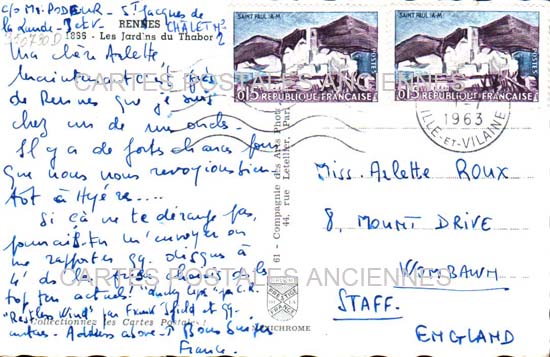 c/o Mr. PODEUR - St Jacques de
la Lande - I et V. CHALET N°
2
RENNES
1866 - Les Jardins du Thabor
Ma chère Arlette
Maintenant c'est
de Rennes que je suis
chez un de mes oncles.
Il y a de fortes chances pour
que nous nous revoyions bien
tôt à Hyère....
Si ça ne te dérange pas,
pourrais-tu m'envoyer ou
me rapporter qq. disques à
4' de la
top ten actuel: "
"Restless Wind" par Frank Ifield et qq.
autres. Address above. Bons baisers
France
Collectionnez les Cartes Postales
61 - Compagnie des Arts Photo
44, rue Letellier, Par
SAINT PAUL (A-M)
POSTES
0,15 REPUBLIQUE FRANÇAISE
SAINT PAUL (A-M)
POSTES
0,15 REPUBLIQUE FRANÇAISE
1963
ILLE-ET-VILAINE
Miss. Arlette ROUX
8, MOUNT DRIVE
WOMBAWM
STAFF.
ENGLAND
CARTES POSTALES ANCIENNES
CARTES POSTALES ANCIENNES